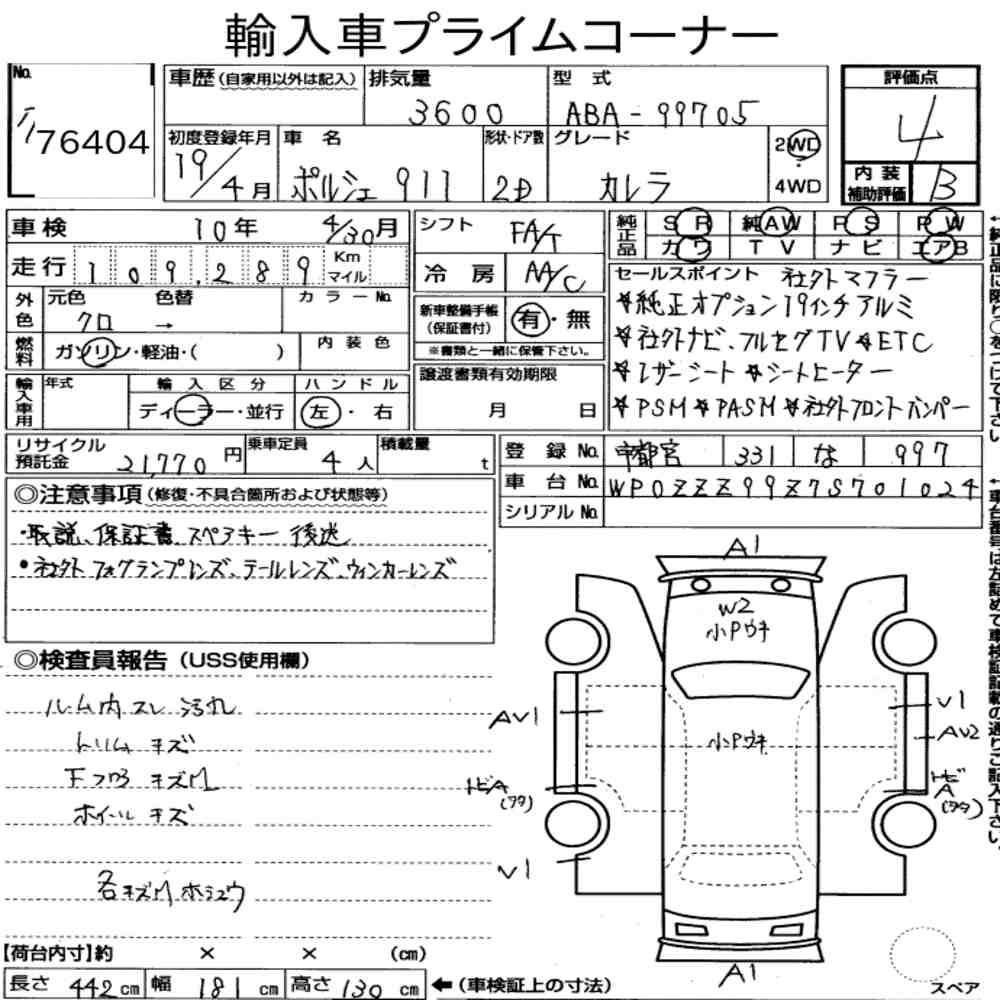 輸入車プライムコーナー
No. 76404
車歴(自家用以外は記入) 排気量 3600 型式 ABA-99705
評価点 4
初度登録年月 19/4月 車名 ポルシェ 911 形状・ドア数 2D グレード カレラ 2WD・4WD
内装補助評価 B
車検 10年 4/30月 シフト FA/T
純正品 SR 純AW PS PW
カワ TV ナビ エアB
走行 109,289 Km マイル 冷房 AA/C
外色 元色 クロ 色替 → カラーNo.
燃料 ガソリン・軽油・( ) 内装色
新車整備手帳(保証書付) 有・無
※書類と一緒に保管下さい。
セールスポイント 社外マフラー
★純正オプション19インチアルミ
★社外ナビ、フルセグTV★ETC
★レザーシート★シートヒーター
★PSM★PASM★社外フロントバンパー
輸入車用 年式 輸入区分 ディーラー・並行 ハンドル 左・右
譲渡書類有効期限 月 日
リサイクル預託金 21,770円 乗車定員 4人 積載量 t
登録No. 宇都宮 331 な 997
車台No. WP0ZZZ99Z7S701024
シリアルNo.
◎注意事項(修復・不具合箇所および状態等)
・取説、保証書 スペアキー 後送
・社外 フォグランプレンズ、テールレンズ、ウィンカーレンズ
◎検査員報告(USS使用欄)
ルーム内スレ 汚れ
トリム キズ
Fフロ キズM
ホイール キズ
各キズM ホシュウ
A1
W2
小Pウキ
AV1
V1
小Pウキ
AV2
トビA(ワタ)
トビA(ワタ)
V1
A1
スペア
【荷台内寸】約 × × (cm)
長さ 442cm 幅 181cm 高さ 130cm ←(車検証上の寸法)
←純正品に限り○をつけて下さい。
←車台番号は左詰めで車検証記載の通りご記入下さい。